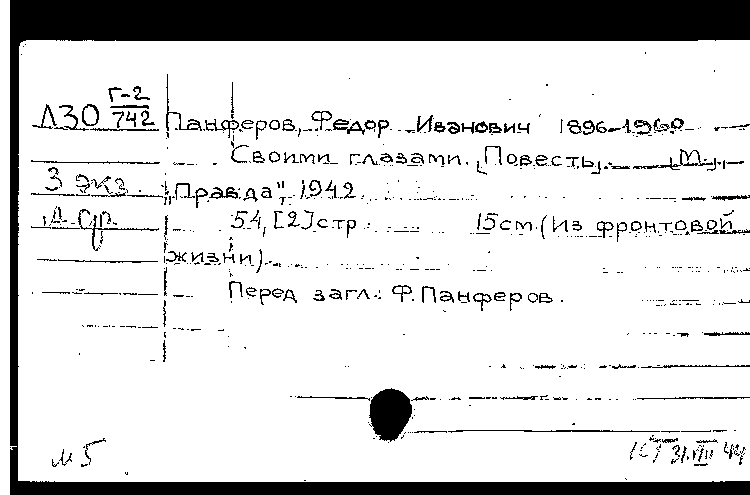 Л30 Г-2/742 Панферов, Федор Иванович 1896-1960
Своими глазами. [Повесть]. [М.],
3 экз. "Правда", 1942.
54, [2] стр. 15 см. (Из фронтовой
жизни).
Перед загл.: Ф. Панферов.
м 5
31.VIII 44